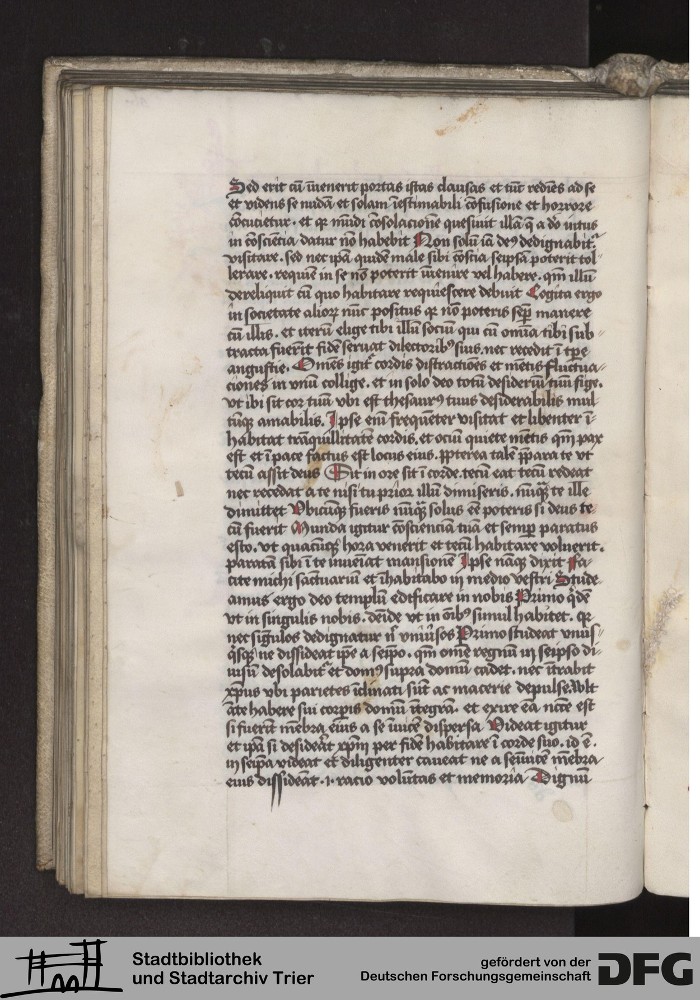 Sed erit cū īuenerit portas istas clausas et tūc rediēs ad se
et videns se nudā et solam īestimabili cōfusione et horrore
cōcucietur. et qr mūdi cōsolacionē quesiuit illā q̄ a dō intus
in cōsciēcia datur nō habebit Non solū iā deꝰ dedignabit᷑
visitare. sed nec ipā quidē male sibi cōscia seipsā poterit tol-
lerare. requiē in se nō poterit īuenire vel habere. qm̄ illū
dereliquit cū quo habitare requiescere debuit Cogita ergo
in societate alioꝝ nūc positus qr nō poteris sēp manere
cū illis. et iterū elige tibi illū sociū qui cū om̄ia tibi sub-
tracta fuerīt fidē seruat dilectoribꝰ suis. nec recedit ī tp̄e
angustie. Om̄es igit᷑ cordis distractiōes et mētis fluctua-
ciones in vnū collige. et in solo deo totū desideriū tuū fige.
vt ibi sit cor tuū vbi est thesaurꝰ tuus desiderabilis mul
tūqꝫ amabilis. Ipse enī frequēter visitat et libenter ī-
habitat trāquillitatē cordis. et ociū quiete mētis qm̄ pax
est et ī pace factus est locus eius. ꝓpterea talē p̄para te vt
tecū assit deus Sit in ore sit ī corde. tecū eat tecū redeat
nec recedat a te nisi tu prior illū dimiseris. nūqꝫ te ille
dimittet Vbicūqꝫ fueris nūqꝫ solus eē poteris si deus te-
cū fuerit Munda igitur cōscienciā tuā et semp paratus
esto. vt quacūqꝫ hora venerit et tecū habitare voluerit.
paratā sibi ī te inueīat mansionē Ipse nāqꝫ dixit Fa
cite michi sāctuariū et īhabitabo in medio vestri Stude-
amus ergo deo templū edificare in nobis Primo q̇dē
vt in singulis nobis. deīde vt in ōībꝰ simul habitet. qr
nec sīgulos dedignatur nͨ vniūsos Primo studeat vnus-
q̇sqꝫ ne dissideat ip̄e a seipō. qm̄ omē regnū in seipso di-
uisū desolabit᷑ et domꝰ supra domū cadet. nec ītrabit
xp̄us vbi parietes īclinati sūt ac macerie depulse. Vult
āte habere sui corpis domū ītegrā. et exire eā nc̄ce est
si fuerīt mēbra eius a se īuicē dispersa Videat igitur
et ipā si desiderat xpm̄ per fidē habitare ī corde suo. id ē.
in seipā videat et diligenter caueat ne a seīuicē mēbra
eius dissideāt .i. racio volūtas et memoria Dignū
Stadtbibliothek
und Stadtarchiv Trier
gefördert von der
Deutschen Forschungsgemeinschaft
DFG